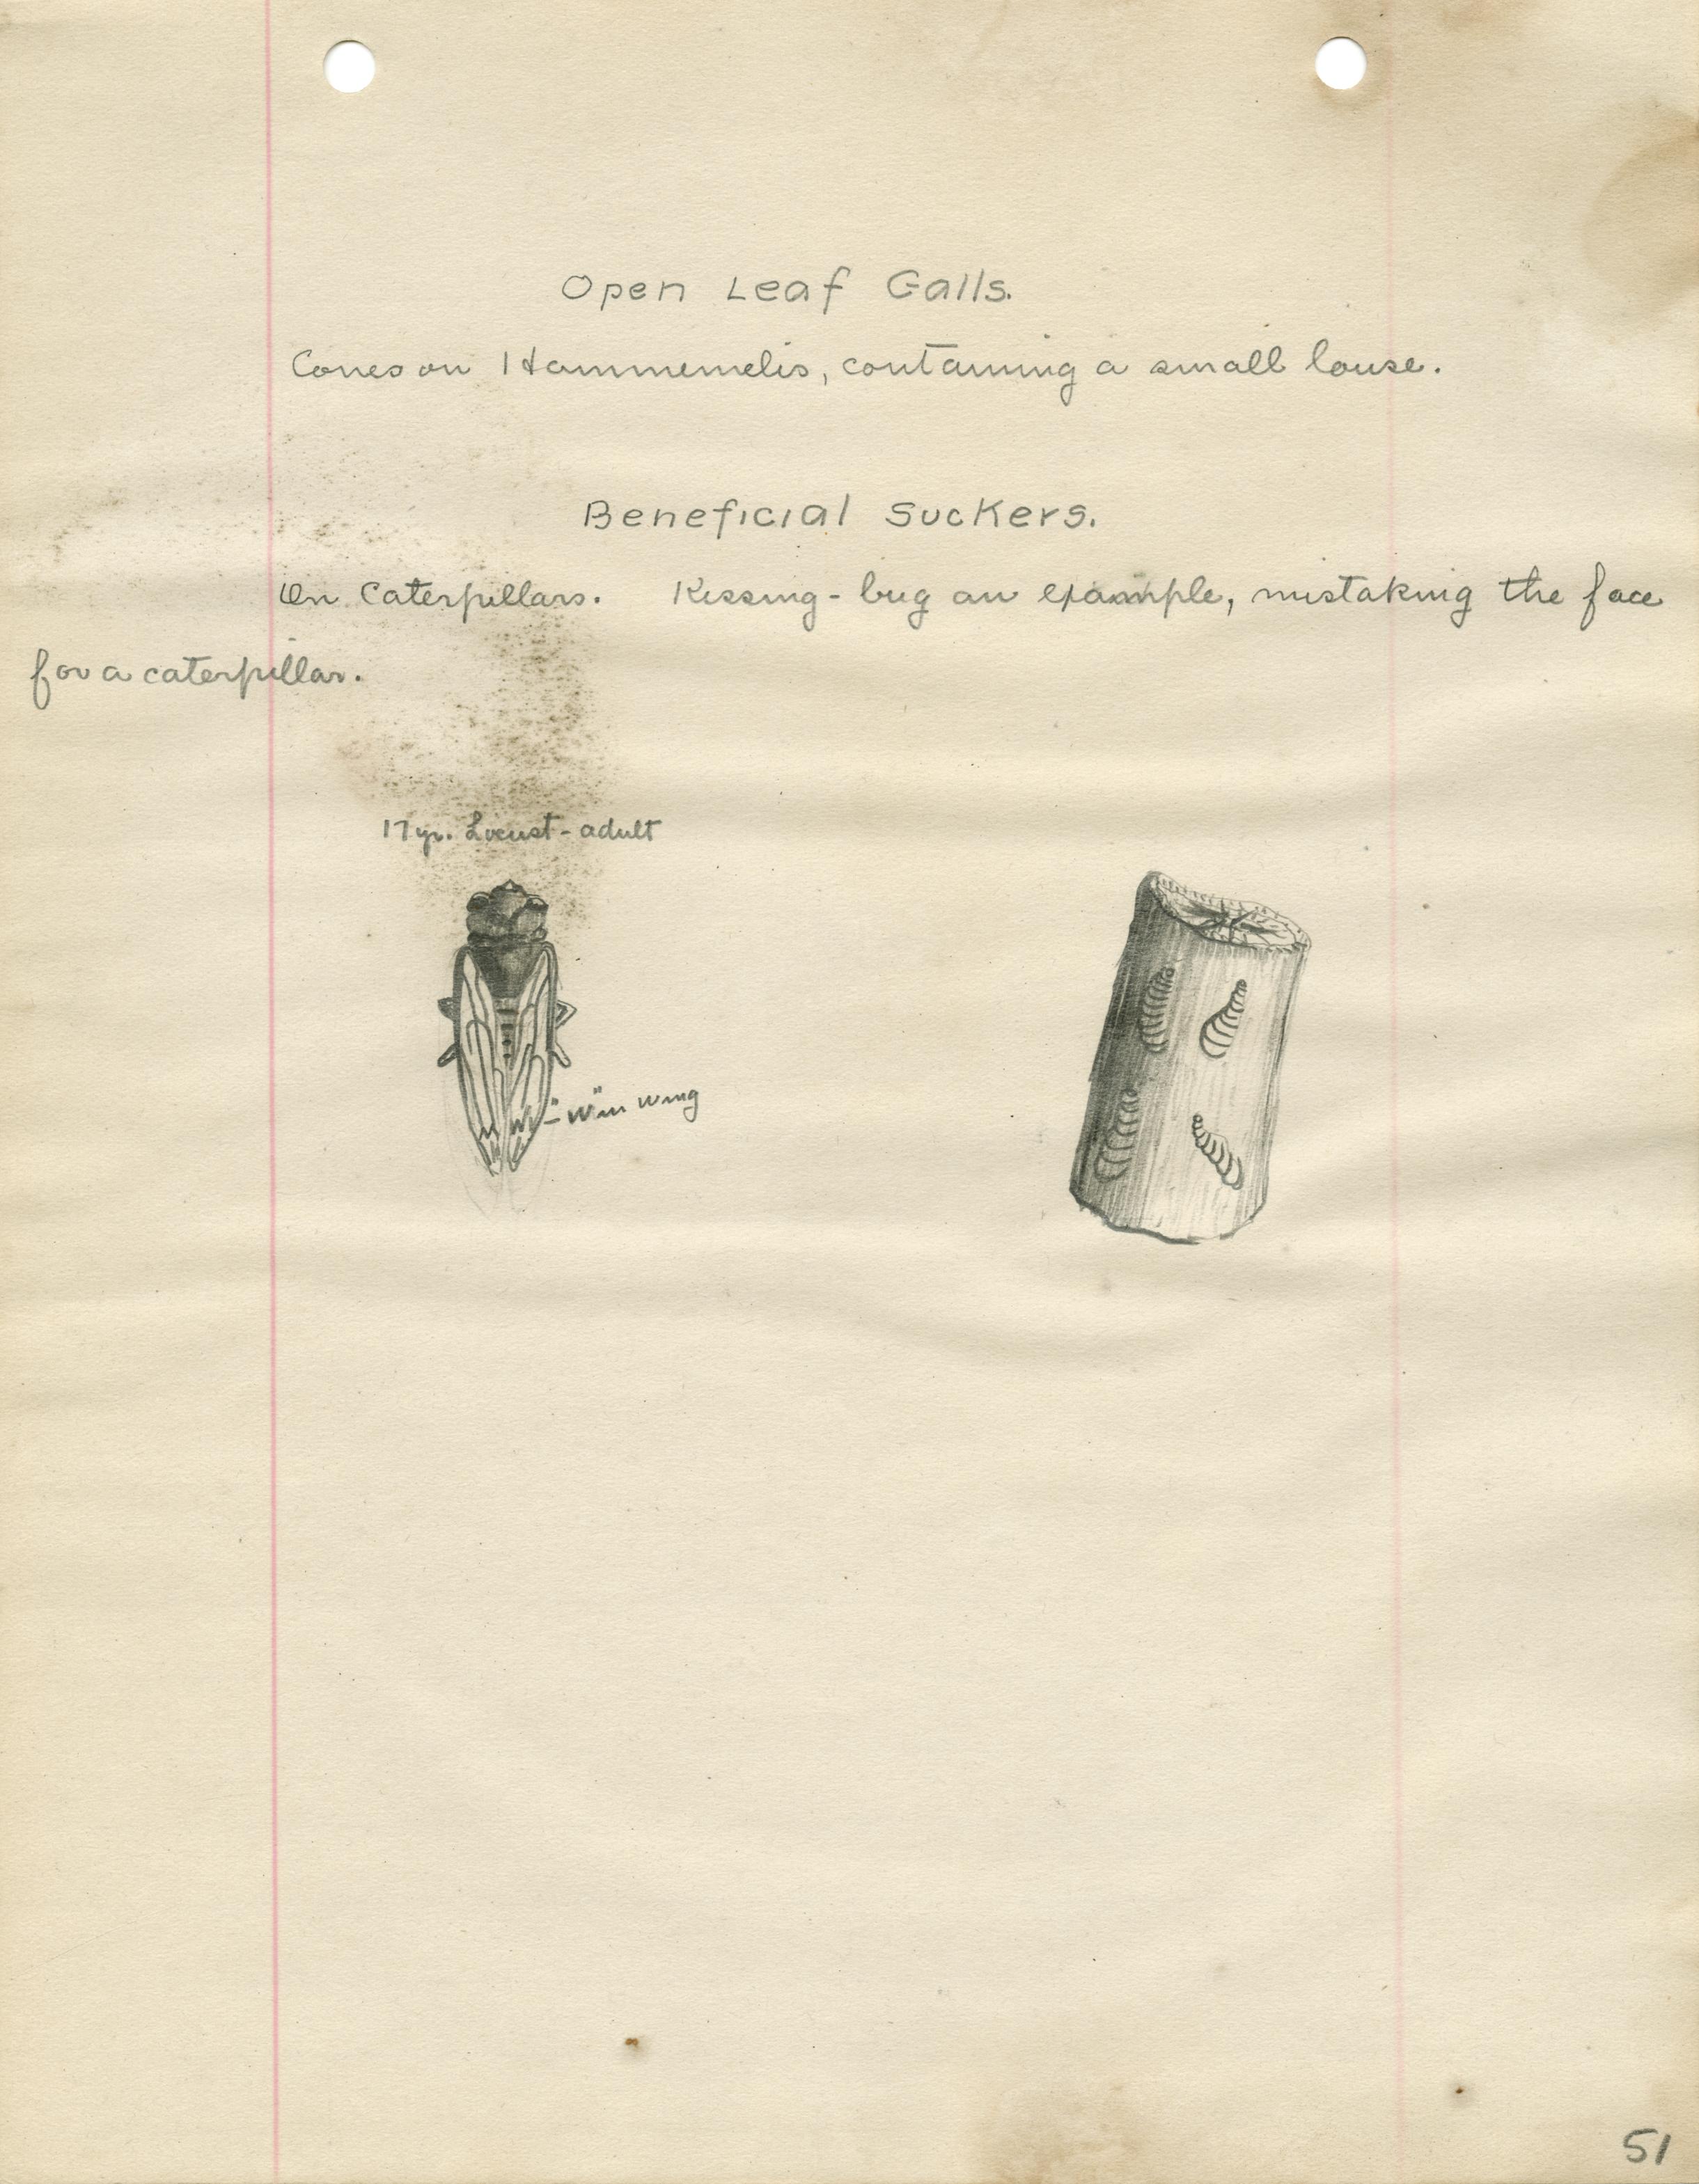 Open Leaf Galls.
Cones on Hammemelis, containing a small louse.
Beneficial Suckers.
On Caterpillars. Kissing-bug an example, mistaking the face
for a caterpillar.
17 yr. Locust - adult
- "W" in wing
51